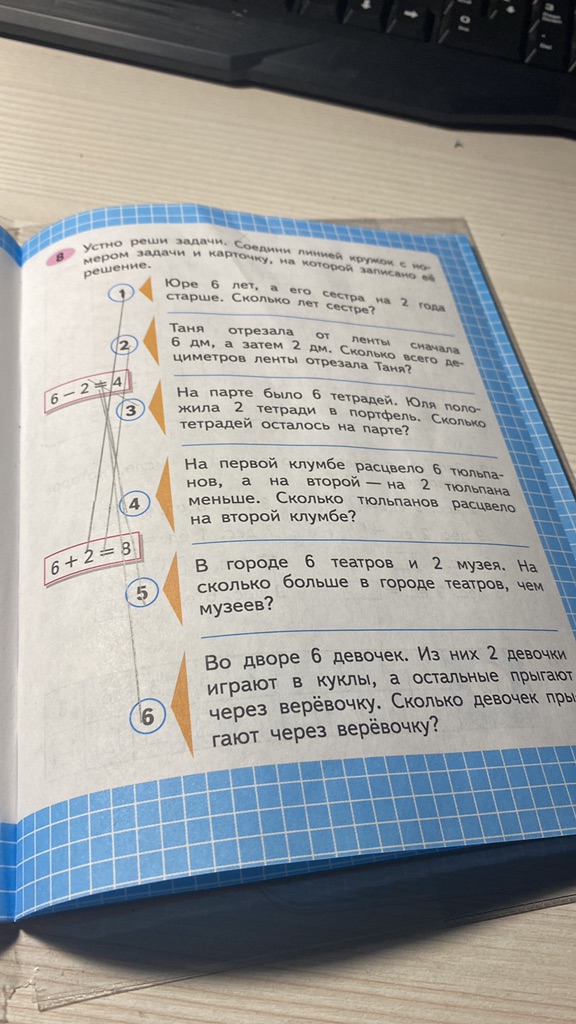 8 Устно реши задачи. Соедини линией кружок с но-
мером задачи и карточку, на которой записано её
решение.
1 Юре 6 лет, а его сестра на 2 года
старше. Сколько лет сестре?
2 Таня отрезала от ленты сначала
6 дм, а затем 2 дм. Сколько всего де-
циметров ленты отрезала Таня?
6 − 2 = 4
3 На парте было 6 тетрадей. Юля поло-
жила 2 тетради в портфель. Сколько
тетрадей осталось на парте?
4 На первой клумбе расцвело 6 тюльпа-
нов, а на второй — на 2 тюльпана
меньше. Сколько тюльпанов расцвело
на второй клумбе?
6 + 2 = 8
5 В городе 6 театров и 2 музея. На
сколько больше в городе театров, чем
музеев?
6 Во дворе 6 девочек. Из них 2 девочки
играют в куклы, а остальные прыгают
через верёвочку. Сколько девочек пры
гают через верёвочку?